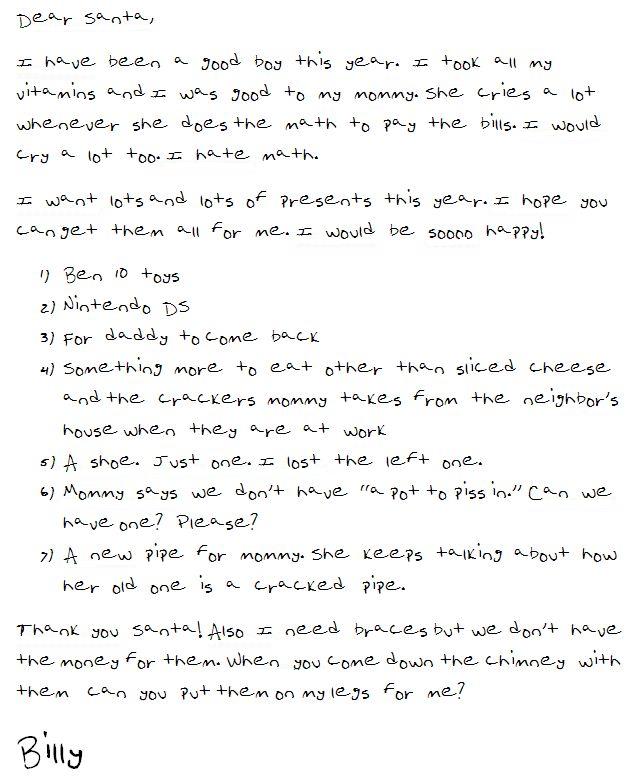 Dear Santa,
I have been a good boy this year. I took all my
vitamins and I was good to my mommy. She cries a lot
whenever she does the math to pay the bills. I would
cry a lot too. I hate math.
I want lots and lots of presents this year. I hope you
can get them all for me. I would be soooo happy!
1) Ben 10 toys
2) Nintendo DS
3) For daddy to come back
4) Something more to eat other than sliced cheese
and the crackers mommy takes from the neighbor's
house when they are at work
5) A shoe. Just one. I lost the left one.
6) Mommy says we don't have "a pot to piss in." Can we
have one? Please?
7) A new pipe for mommy. She keeps talking about how
her old one is a cracked pipe.
Thank you Santa! Also I need braces but we don't have
the money for them. When you come down the chimney with
them can you put them on my legs for me?
Billy